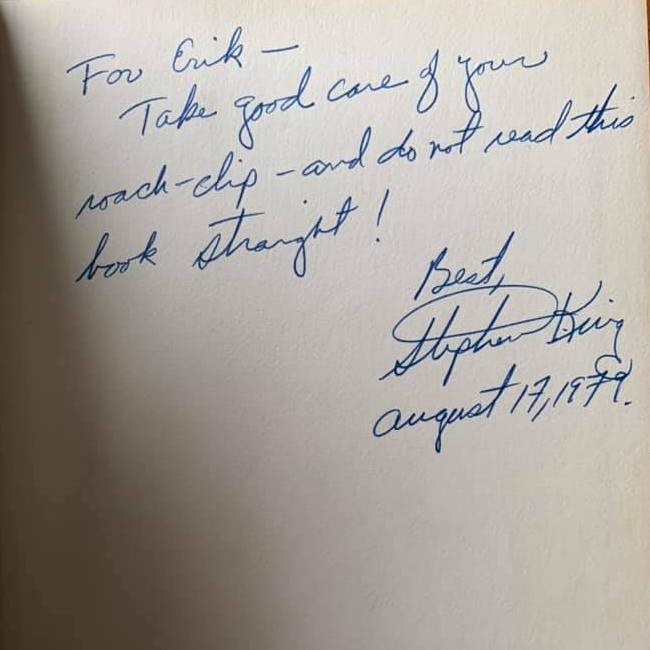 For Erik —
Take good care of your
roach-clip - and do not read this
book straight!
Best,
Stephen King
August 17, 1979.